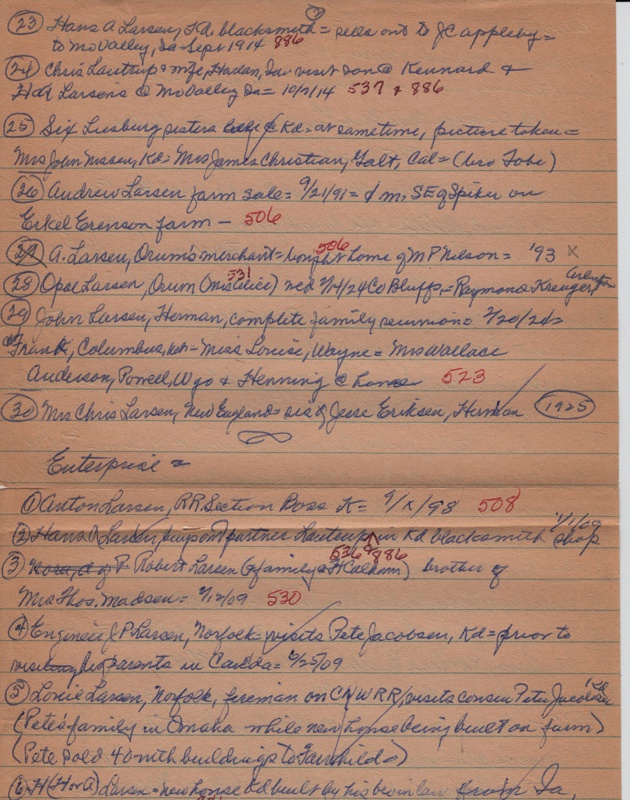 (23) Hans A Larsen, Kd. blacksmith = sells out to JC appleby =
to Mo Valley, Ia - Sept 1914 886
(24) Chris Lautrup & wife, Harlan, Ia. visit son @ Kennard &
H A Larsens @ Mo Valley Ia = 10/7/14 537 & 886
(25) Six Liesburg sisters @ Kd = at sametime, picture taken =
Mrs John Nissen, Kd = Mrs James Christian, Galt, Cal =
(26) Andrew Larsen farm sale = 9/21/91 = 1 m. SE of Spiker on
Erkel Erenson farm - 506
(27) A. Larsen, Orum's merchant = bought home of M P Nelson = '93 x
506
(28) Opal Larsen, Orum wed 2/14/24 Co Bluffs, = Raymond Kreuger, Arlington
531
(29) John Larsen, Herman, complete family reunion = 2/20/24 =
Frank, Columbus, = Miss Louise, Wayne = Mrs Wallace
Anderson, Powell, Wyo & Henning @ home 523
(30) Mrs Chris Larsen, New England = sis of Jesse Eriksen, Herman (1925)
Enterprise =
(1) Anton Larsen, RR Section Boss K = 9/x/98 508
(2) Hans A Larsen, buys out partner Lautrup in Kd blacksmith shop 1/1/09
536 & 886
(3) Robert Larsen brother of
Mrs Thos. Madsen = 2/12/09 530
(4) Engineer J P Larsen, Norfolk = visits Pete Jacobsen, Kd = prior to
visiting his parents in Canada = 6/25/09
(5) Louie Larsen, Norfolk, fireman on CNW RR, visits cousin Peter Jacobsen Kd
(Pete's family in Omaha while new house being built on farm)
(Pete sold 40 with buildings to Fairchilds)
(6) H (H or A) Larsen = new house Kd built by his bro in law Ia,